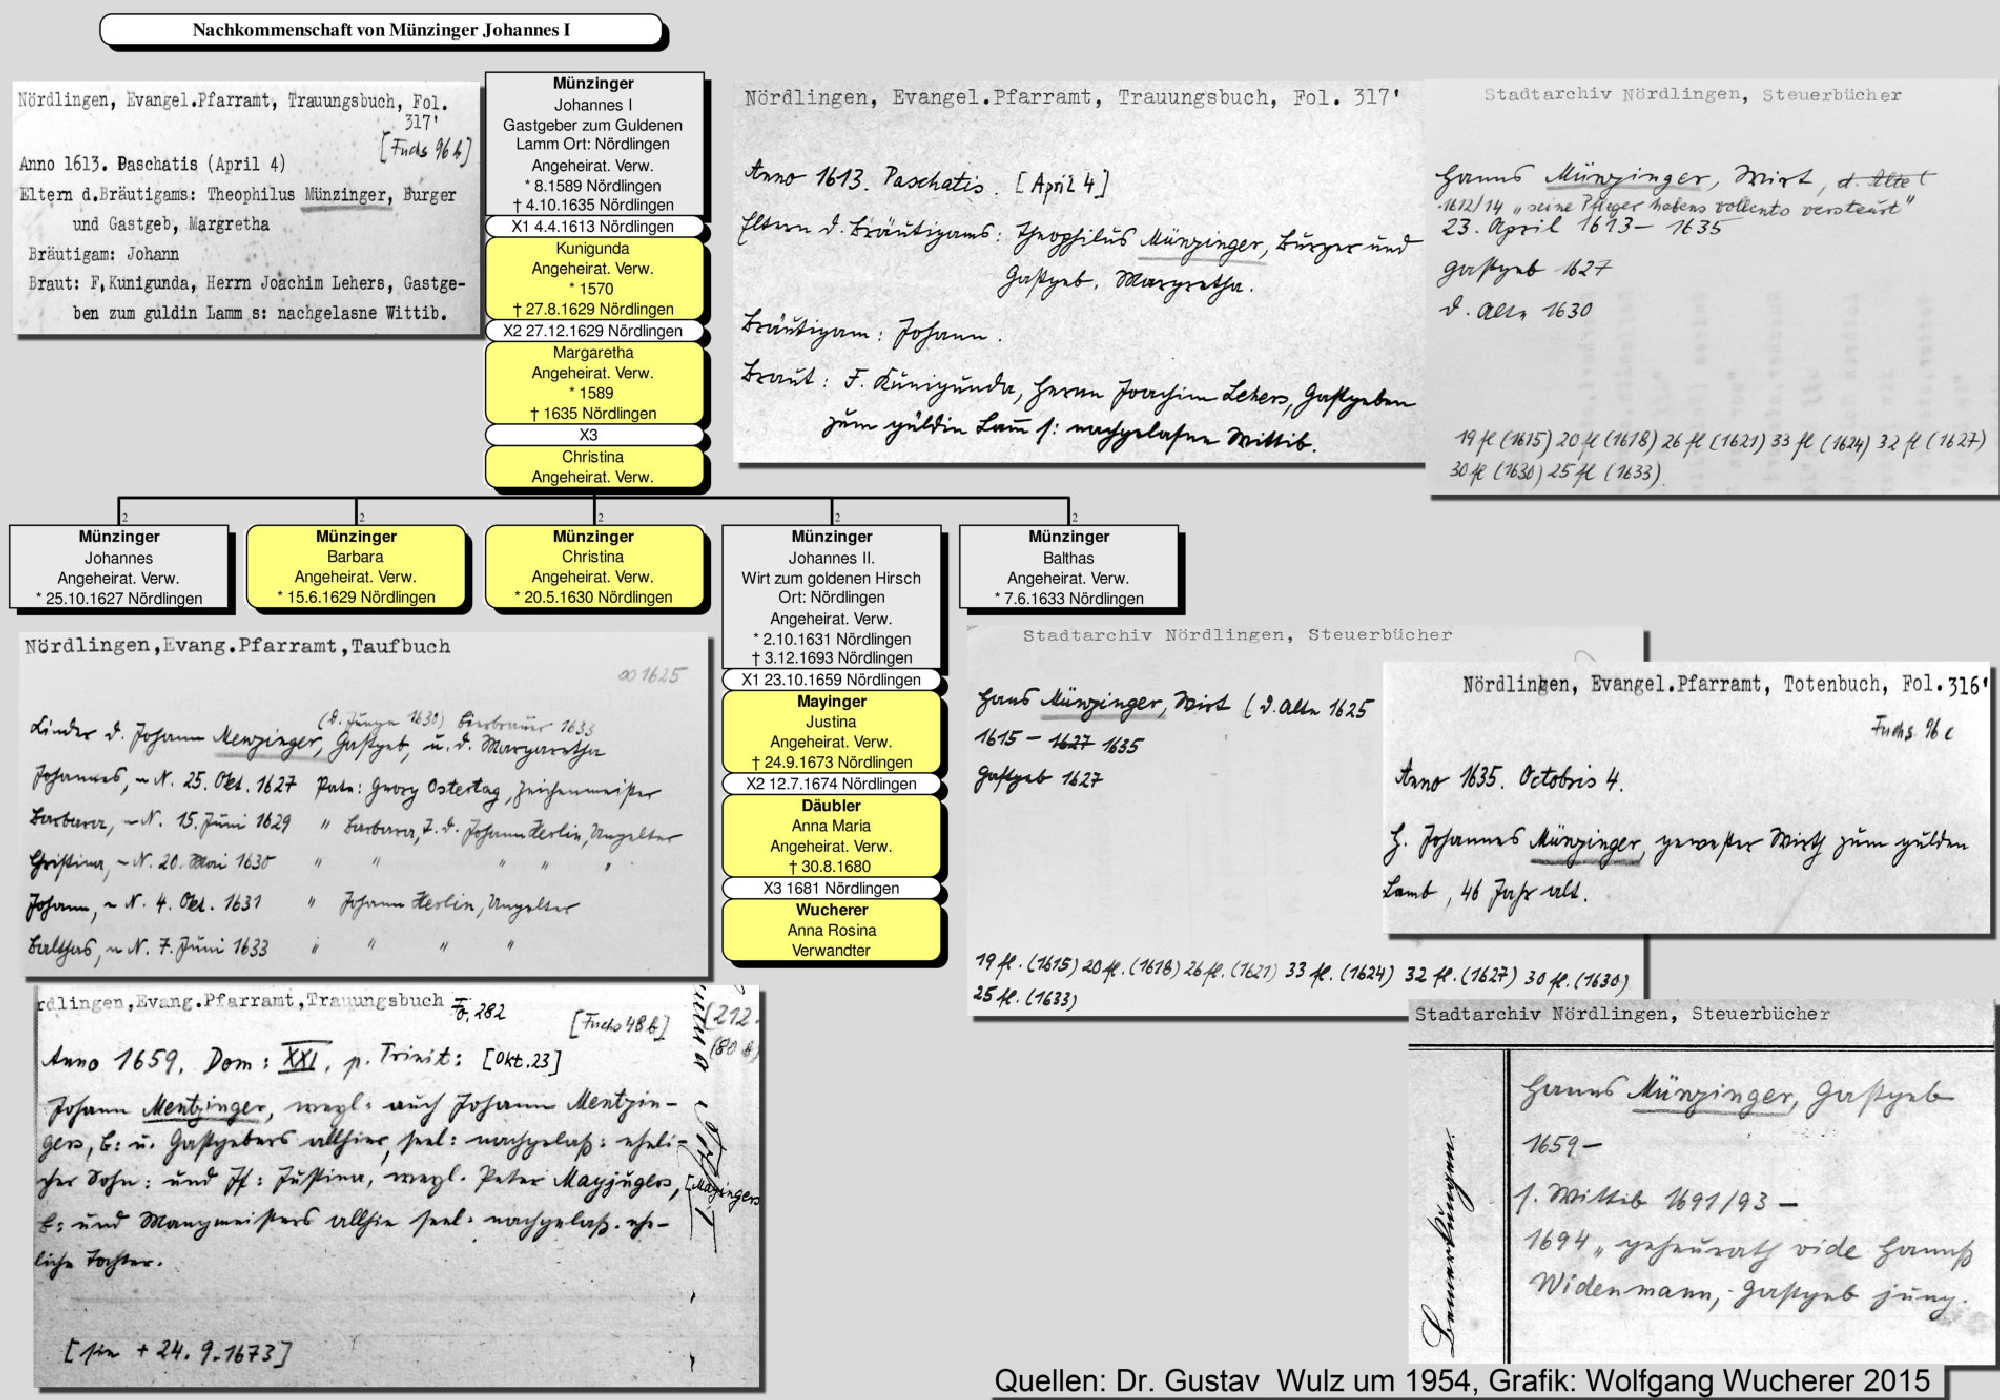 Nachkommenschaft von Münzinger Johannes I
Nördlingen, Evangel.Pfarramt, Trauungsbuch, Fol.
317'
[Fuchs 96 b]
Anno 1613. Paschatis (April 4)
Eltern d.Bräutigams: Theophilus Münzinger, Burger
und Gastgeb, Margretha
Bräutigam: Johann
Braut: F,Kunigunda, Herrn Joachim Lehers, Gastge-
ben zum guldin Lamm s: nachgelasne Wittib.
Münzinger
Johannes I
Gastgeber zum Guldenen
Lamm Ort: Nördlingen
Angeheirat. Verw.
* 8.1589 Nördlingen
† 4.10.1635 Nördlingen
X1 4.4.1613 Nördlingen
Kunigunda
Angeheirat. Verw.
* 1570
† 27.8.1629 Nördlingen
X2 27.12.1629 Nördlingen
Margaretha
Angeheirat. Verw.
* 1589
† 1635 Nördlingen
X3
Christina
Angeheirat. Verw.
Nördlingen, Evangel.Pfarramt, Trauungsbuch, Fol. 317'
Anno 1613. Paschatis. [April 4]
Eltern d. Bräutigams: Theophilus Münzinger, Burger und
Gastgeb, Margretha.
Bräutigam: Johann.
Braut: F. Kunigunda, Herrn Joachim Lehers, Gastgeben
zum güldin Lam̄ s: nachgelasne Wittib.
Stadtarchiv Nördlingen, Steuerbücher
Hanns Münzinger, Wirt, d. Alte (
1612/14 „seine Pfleger habens vollents versteurt"
23. April 1613 – 1635
Gastgeb 1627
d. Alte 1630
19 fl (1615) 20 fl (1618) 26 fl (1621) 33 fl (1624) 32 fl (1627)
30 fl (1630) 25 fl (1633).
2
2
2
2
2
Münzinger
Johannes
Angeheirat. Verw.
* 25.10.1627 Nördlingen
Münzinger
Barbara
Angeheirat. Verw.
* 15.6.1629 Nördlingen
Münzinger
Christina
Angeheirat. Verw.
* 20.5.1630 Nördlingen
Münzinger
Johannes II.
Wirt zum goldenen Hirsch
Ort: Nördlingen
Angeheirat. Verw.
* 2.10.1631 Nördlingen
† 3.12.1693 Nördlingen
X1 23.10.1659 Nördlingen
Mayinger
Justina
Angeheirat. Verw.
† 24.9.1673 Nördlingen
X2 12.7.1674 Nördlingen
Däubler
Anna Maria
Angeheirat. Verw.
† 30.8.1680
X3 1681 Nördlingen
Wucherer
Anna Rosina
Verwandter
Münzinger
Balthas
Angeheirat. Verw.
* 7.6.1633 Nördlingen
Nördlingen,Evang.Pfarramt,Taufbuch
∞ 1625
(d. Junge 1630) Bierbrauer 1633
Kinder d. Johann Menzinger, Gastgeb, u. d. Margaretha
Johannes, ~ N. 25. Okt. 1627 Pate: Georg Ostertag, Zeichenmeister
Barbara, ~ N. 15. Juni 1629 " Barbara, F. d. Johann Herlin, Ungelter
Christina, ~ N. 20. Mai 1630 " " " " "
Johann, ~ N. 4. Okt. 1631 " Johann Herlin, Ungelter
Balthas, ~ N. 7. Juni 1633 " " " "
Stadtarchiv Nördlingen, Steuerbücher
Hans Münzinger, Wirt (d. Alte 1625
1615 – 1627 1635
Gastgeb 1627
19 fl. (1615) 20 fl. (1618) 26 fl. (1621) 33 fl. (1624) 32 fl. (1627) 30 fl. (1630)
25 fl. (1633)
Nördlingen, Evangel.Pfarramt, Totenbuch, Fol.316'
Fuchs 96 c
Anno 1635. Octobris 4.
H. Johannes Münzinger, gewester Wirth zum gülden
Lamb, 46 Jahr alt.
rdlingen,Evang.Pfarramt,Trauungsbuch Fo. 282
[Fuchs 48 b]
[212.
(80 b)
Anno 1659, Dom: XXI, p. Trinit: [Okt. 23]
Johann Mentzinger, weyl: auch Johann Mentzin-
gers, B: u. Gastgebers allhier, seel: nachgelaß: eheli-
cher Sohn: und Jf: Justina, weyl. Peter Mayjuglers, [Mayingers
B: und Mangmeisters allhie seel: nachgelaß. ehe-
liche Tochter.
[sie + 24. 9. 1673]
Stadtarchiv Nördlingen, Steuerbücher
Bemerkungen.
Hanns Münzinger, Gastgeb
1659 –
s. Wittib 1691/93 –
1694 „ geheurath vide Hannß
Widenmann, Gastgeb jung.
Quellen: Dr. Gustav Wulz um 1954, Grafik: Wolfgang Wucherer 2015